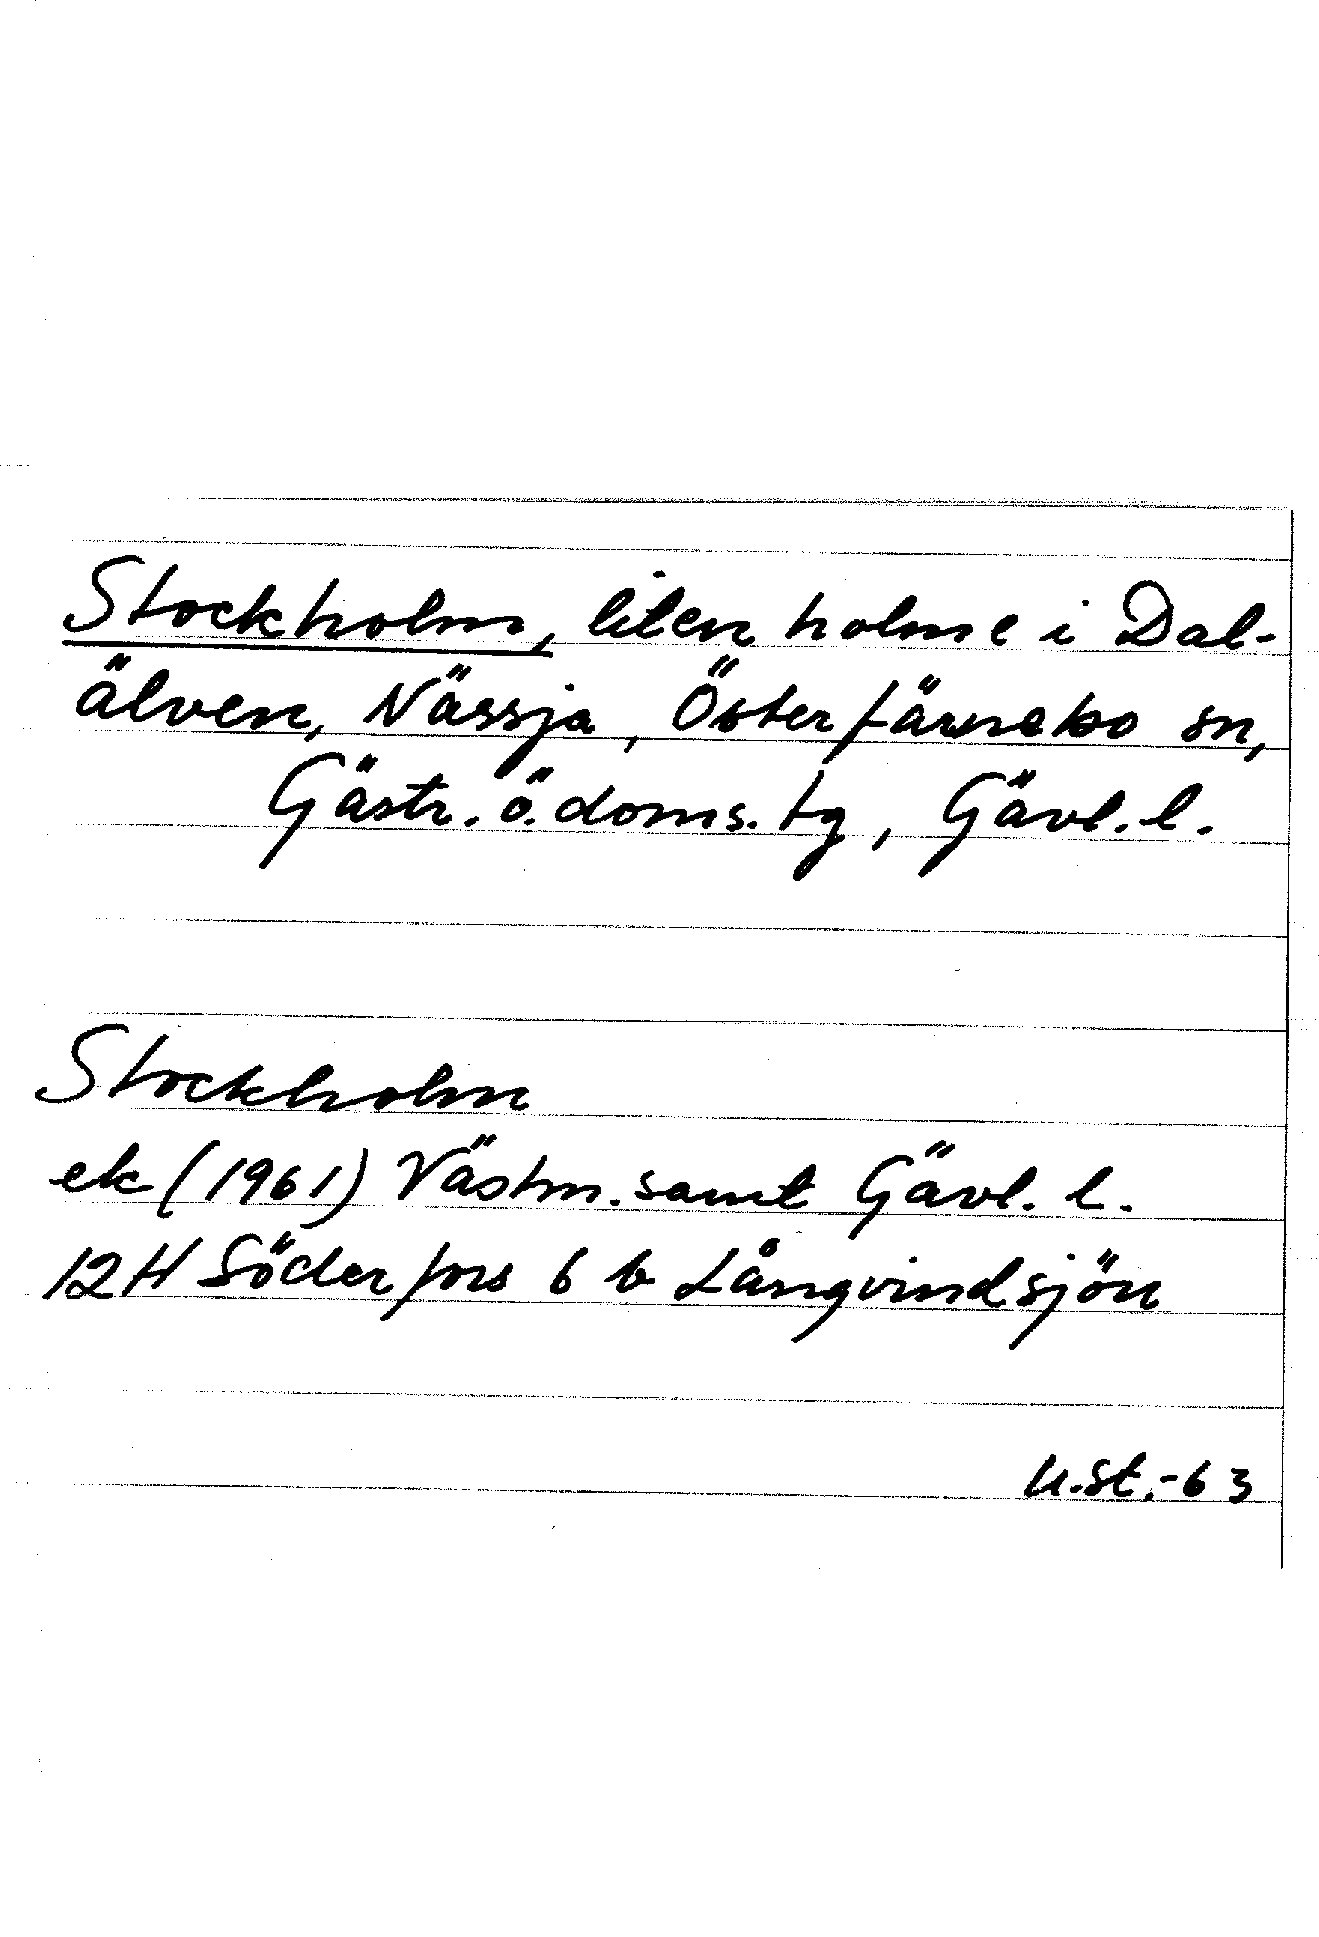 Stockholm, liten holme i Dal-
älven, Nässja, Österfärnebo sn,
Gästr. ö. doms. tg, Gävl. l.
Stockholm
ek (1961) Västm. samt Gävl. l.
12H Söderfors 6 b Långvindsjön
U.St.-63